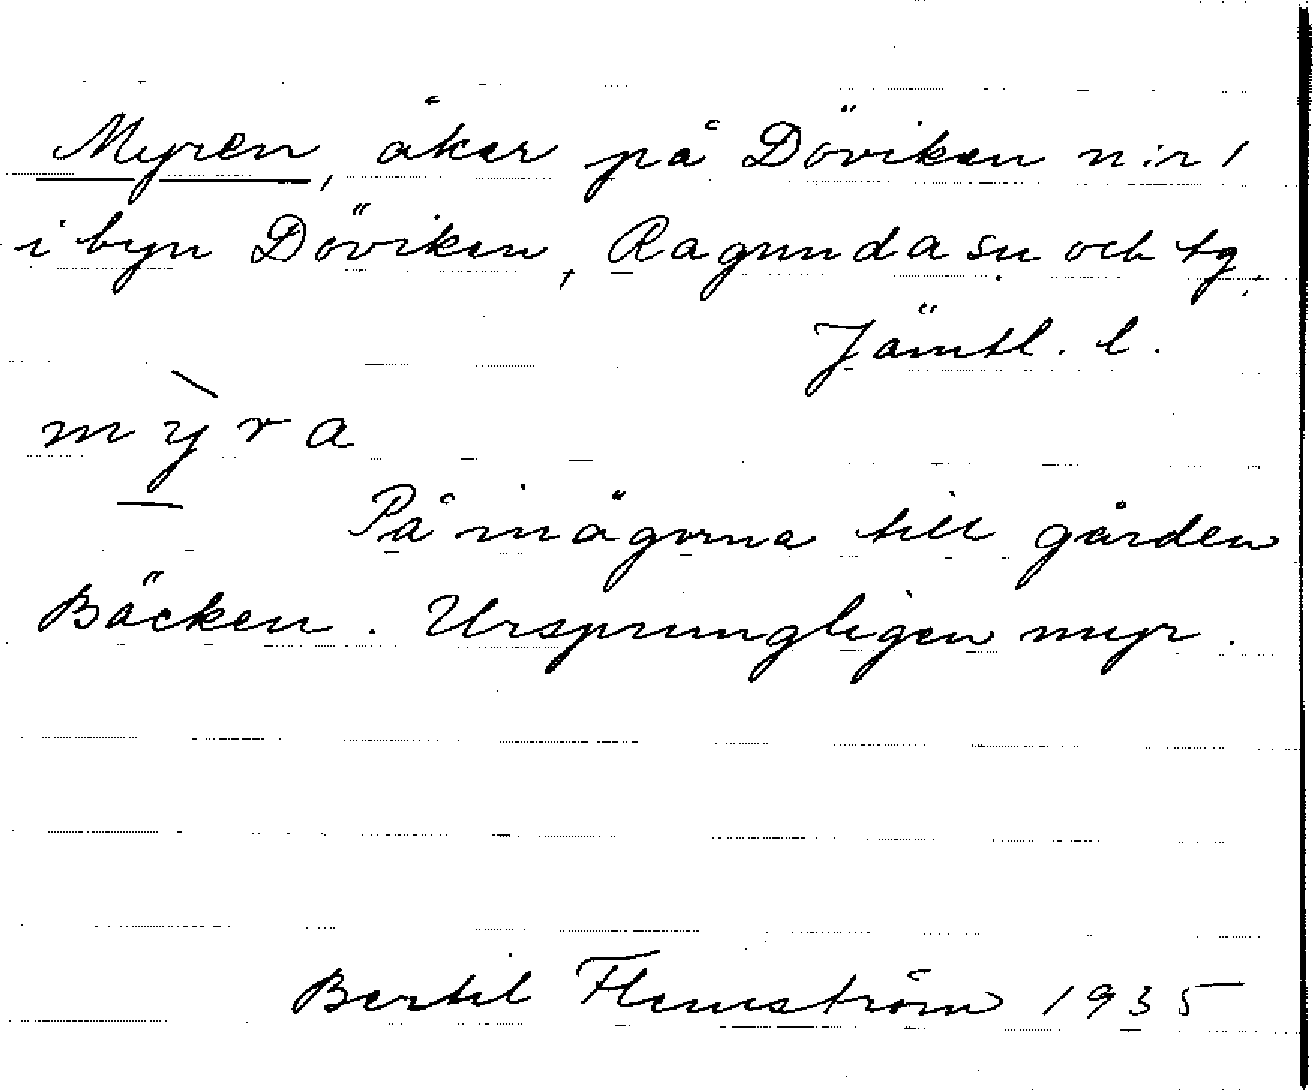 Myren, åker på Döviken n:r 1
i byn Döviken, Ragunda sn och tg,
Jämtl. l.
mỳ̱ra
På inägorna till gården
Bäcken. Ursprungligen myr.
Bertil Flemström 1935